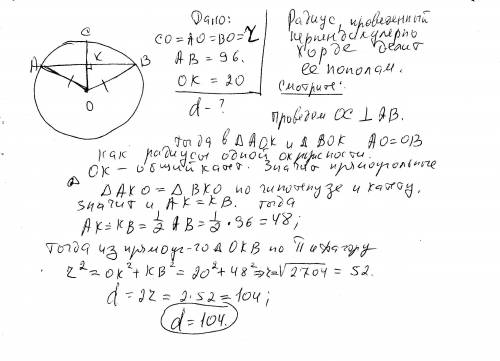 C
A
K
B
O
Дано:
CO = AO = BO = r
AB = 96.
OK = 20
d - ?
Радиус, проведенный
перпендикулярно
хорде делит
ее пополам.
Смотрите:
Проведем OC ⊥ AB.
Тогда в △AOK и △BOK AO=OB
как радиусы одной окружности.
OK - общий катет. Значит прямоугольные
△AKO = △BKO по гипотенузе и катету.
Значит и AK = KB. Тогда
AK = KB = 1/2 AB = 1/2 · 96 = 48;
Тогда из прямоуг-го △OKB по Пифагору
r² = OK² + KB² = 20² + 48² ⇒ r = √2704 = 52.
d = 2r = 2·52 = 104;
d = 104.